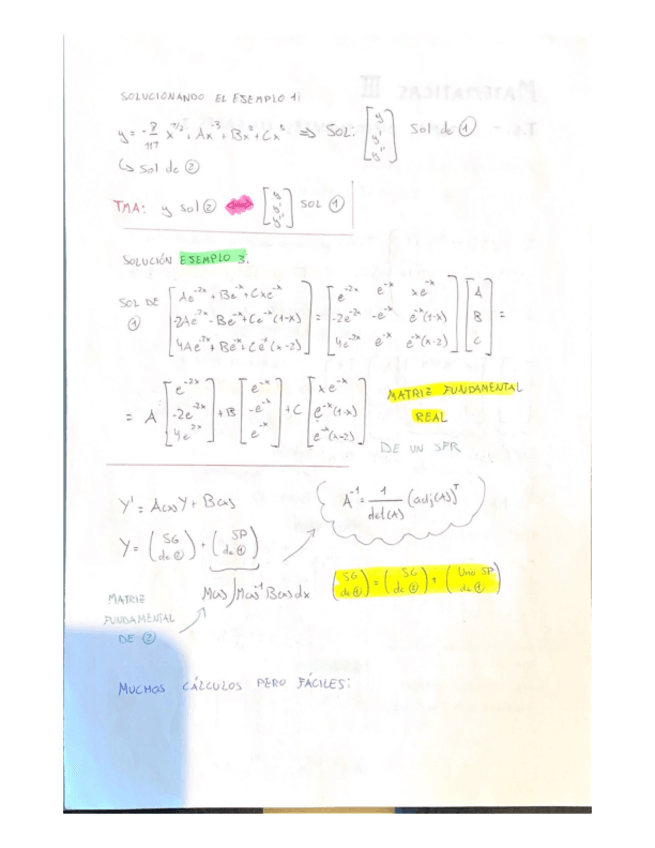 SOLUCIONANDO EL EJEMPLO 1:
y = -8/117 x^(7/2) + Ax^-3 + Bx^2 + Cx ⇒ SOL: [y y' y''] sol de ①
↳ sol de ②
TMA: y sol ② ⟺ [y y' y''] SOL ①
SOLUCIÓN EJEMPLO 3:
SOL DE ① [Ae^-2x + Be^-x + Cxe^-x; -2Ae^-2x - Be^-x + Ce^-x(1-x); 4Ae^-2x + Be^-x + Ce^-x(x-2)] = [e^-2x e^-x xe^-x; -2e^-2x -e^-x e^-x(1-x); 4e^-2x e^-x e^-x(x-2)] [A B C] =
= A [e^-2x; -2e^-2x; 4e^-2x] + B [e^-x; -e^-x; e^-x] + C [xe^-x; e^-x(1-x); e^-x(x-2)]
MATRIZ FUNDAMENTAL
REAL
DE UN SFR
Y' = A(x)Y + B(x)
A^-1 = 1/det(A) (adj(A))^T
Y = (SG de ②) + (SP de ①)
M(x)∫M(x)^-1 B(x)dx
(SG de ①) = (SG de ②) + (Una SP de ①)
MATRIZ
FUNDAMENTAL
DE ②
MUCHOS CÁLCULOS PERO FÁCILES: